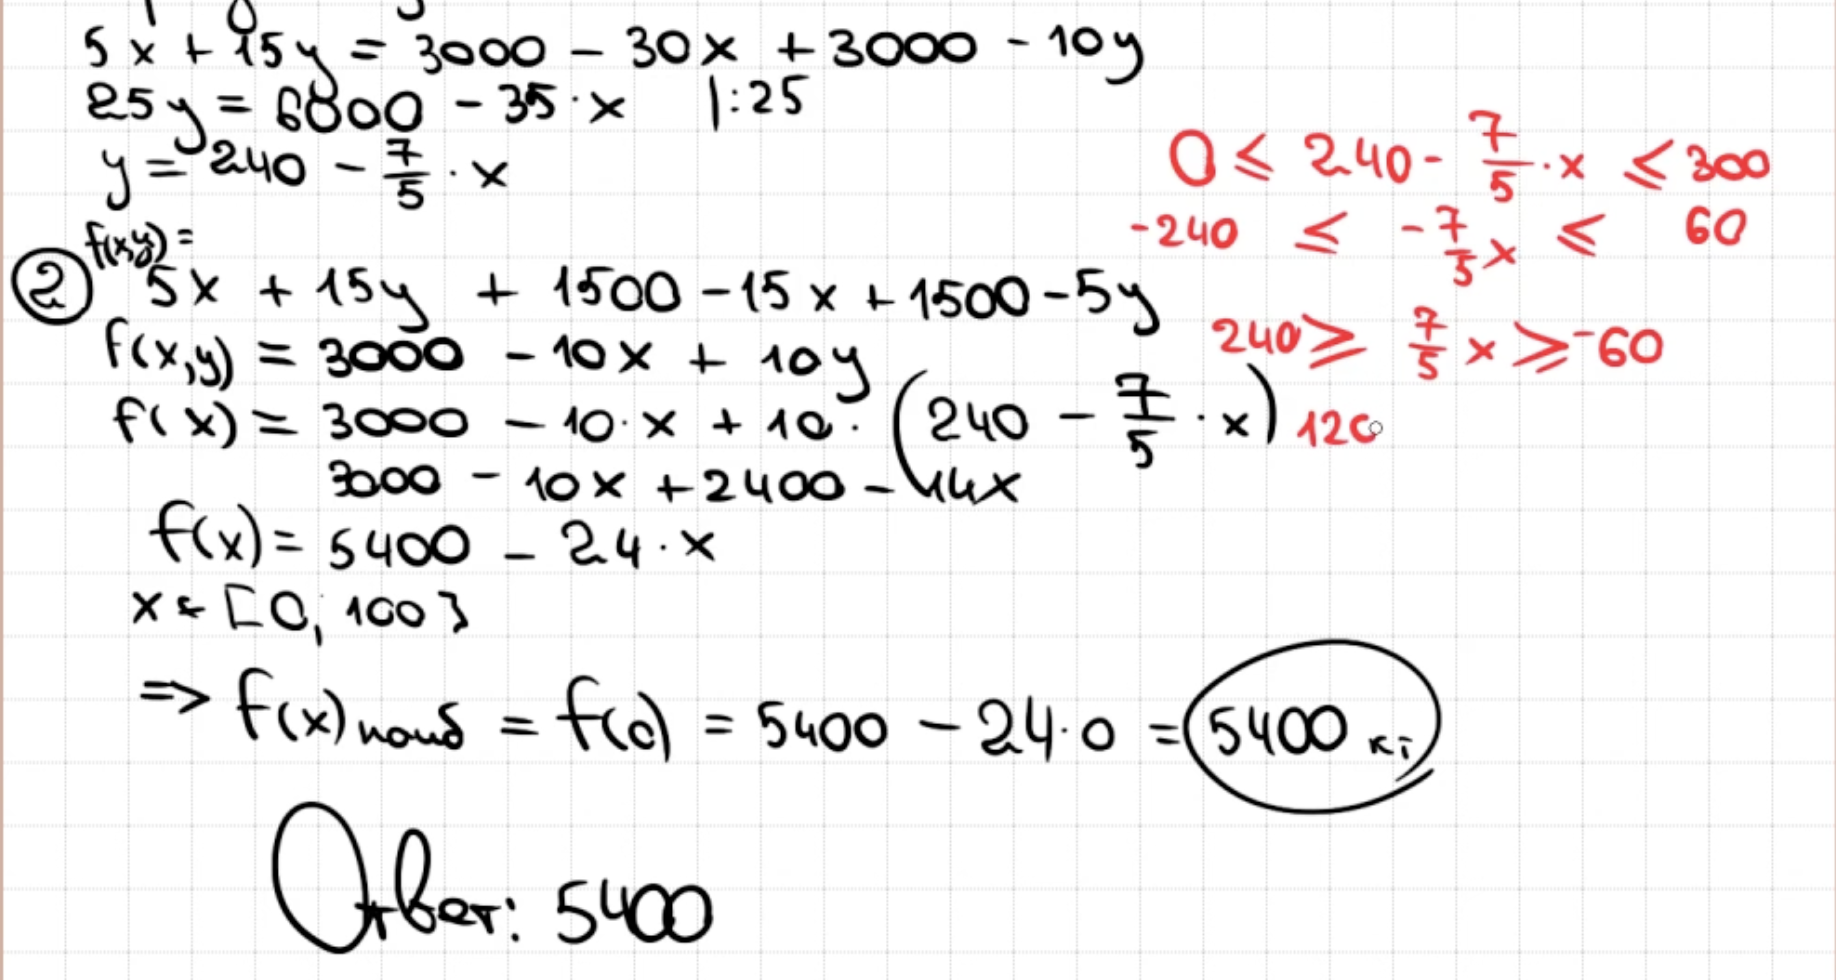 5x + 15y = 3000 - 30x + 3000 - 10y
25y = 6000 - 35·x |:25
y = 240 - 7/5 · x
0 ≤ 240 - 7/5 · x ≤ 300
-240 ≤ -7/5 x ≤ 60
240 ≥ 7/5 x ≥ -60
120
f(x,y) =
② 5x + 15y + 1500 - 15x + 1500 - 5y
f(x,y) = 3000 - 10x + 10y
f(x) = 3000 - 10·x + 10·(240 - 7/5 · x)
3000 - 10x + 2400 - 14x
f(x) = 5400 - 24·x
x ∈ [0; 100]
=> f(x) наиб = f(0) = 5400 - 24·0 = 5400 кг
Ответ: 5400